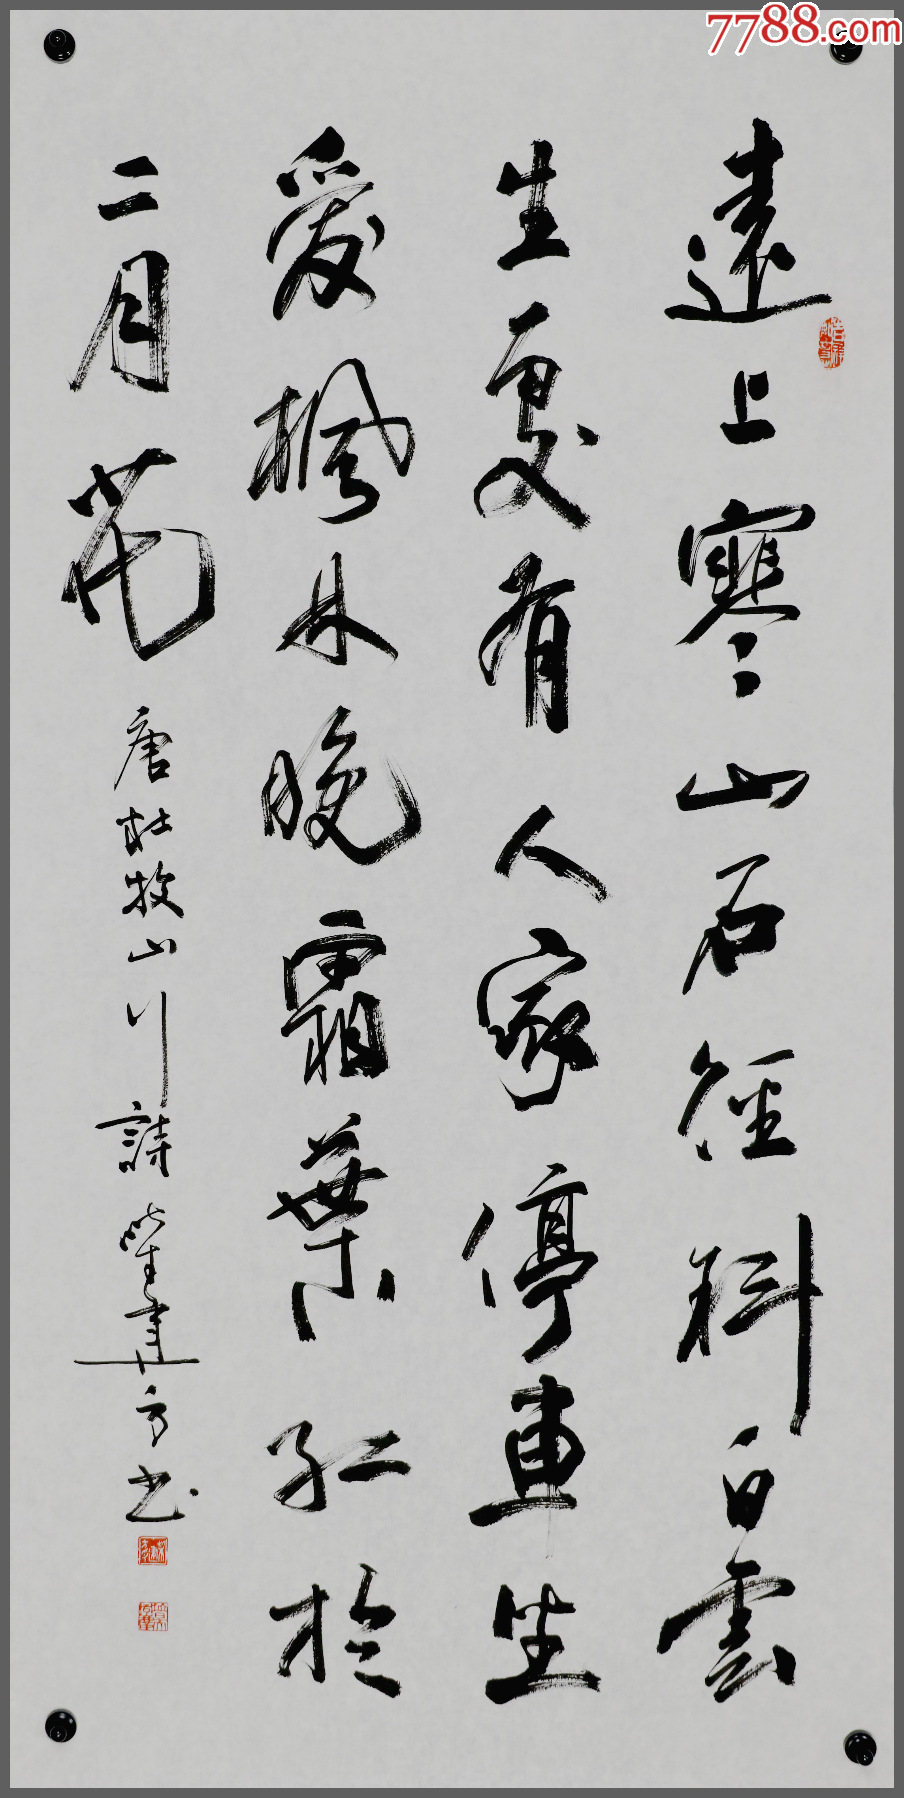 7788.com
遠上寒山石徑斜白雲
生處有人家停車坐
愛楓林晚霜葉紅於
二月花
唐杜牧山行詩 柴建方书